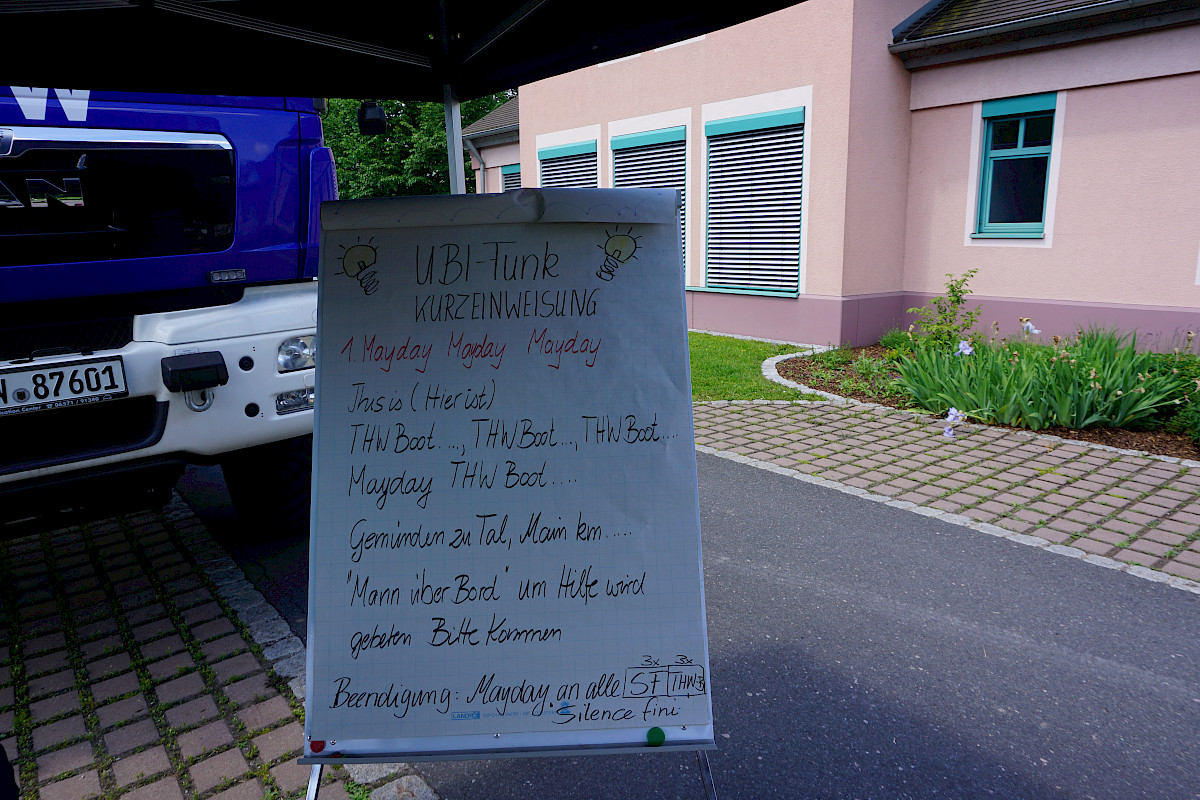 W
AN
87601
UBI-Funk
KURZEINWEISUNG
1. Mayday Mayday Mayday
This is (Hier ist)
THW Boot...., THW Boot..., THW Boot....
Mayday THW Boot....
Gemünden zu Tal, Main km.....
"Mann über Bord" um Hilfe wird
gebeten Bitte Kommen
3x 3x
Beendigung: Mayday an alle SF THWB
Silence fini